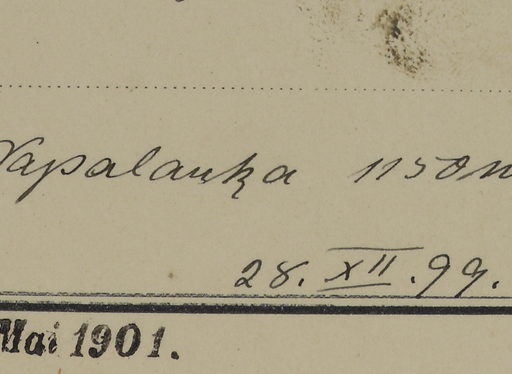 Napalanka 1150m
28. XII. 99.
Mai 1901.